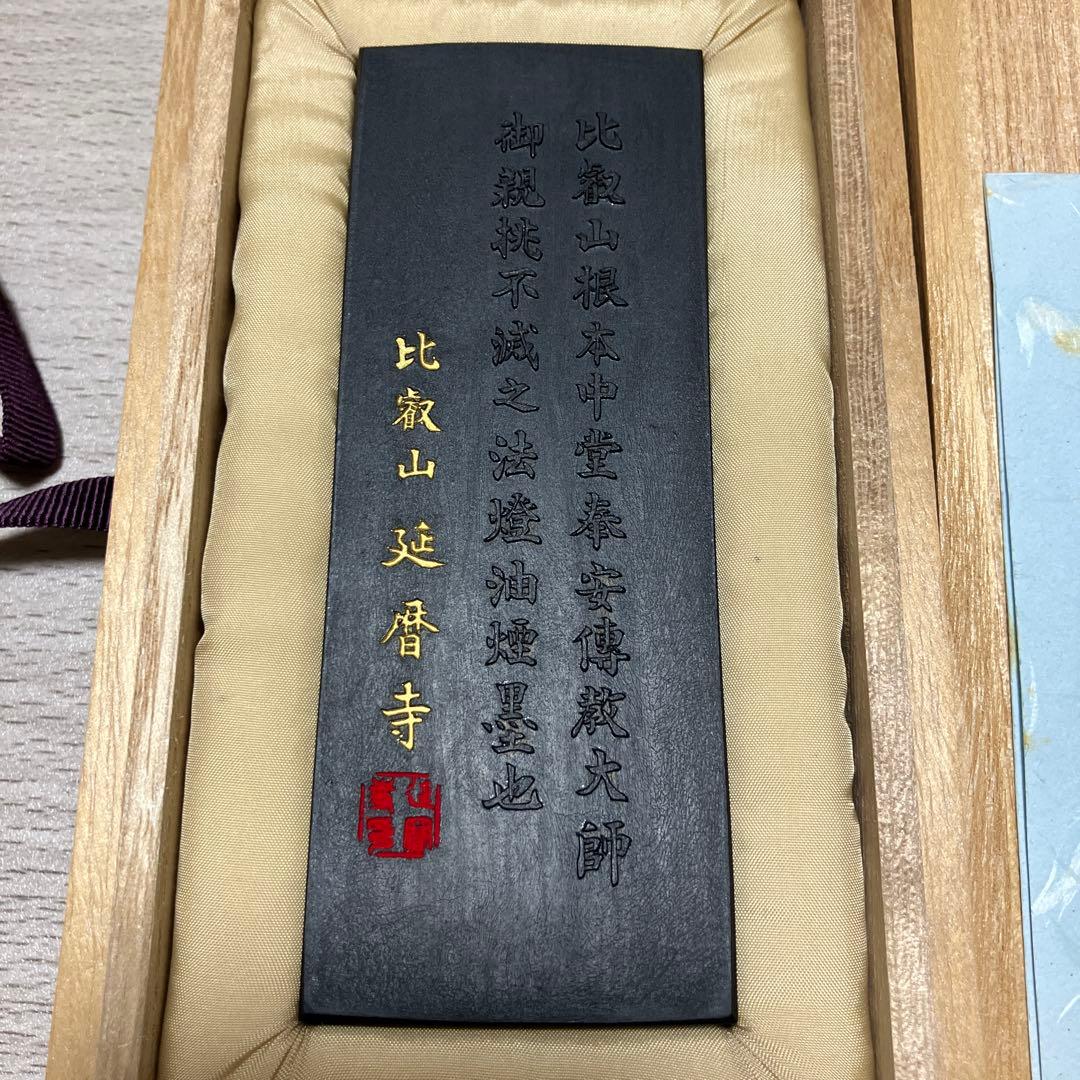 比叡山根本中堂奉安傳教大師
御親挑不滅之法燈油煙墨也
比叡山 延暦寺